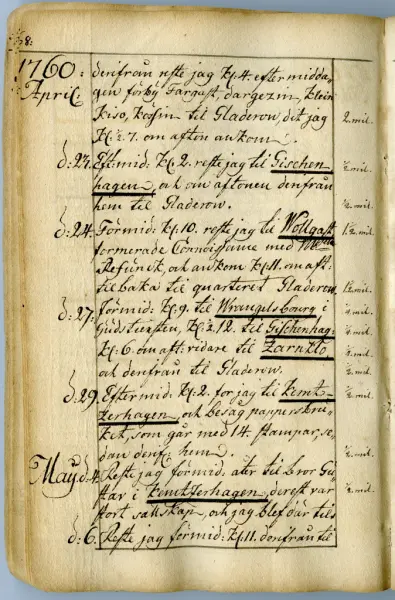 58:
1760: derifrån reste jag kl. 4. eftermidda-
April: gen förby Fargast, dargezin, klein
Kiso, Kosin til Gladerow, dit jag 2. mil.
kl. ½ 7. om afton ankom.
d: 23. Eft:mid: kl. 2. reste jag til Gischen ½ mil.
hagen, och om aftonen derifrån
hem til Gladerow. ½ mil.
d: 24. Förmid: kl. 10. reste jag til Wollgast 1½ mil.
formerade Connoissance med
Refunck, och ankom kl. 11. om aft:
tilbaka til quarteret Gladerow. 1½ mil.
d: 27. Förmid: kl. 9. til Wrangelsbourg i
Gudstiensten, kl. ½ 12. til Gischenhag:
kl. 6. om aft: ridare til Zarnkto
och denfrån til Gladerow. ½ mil.
d: 29. Eftermid: kl. 2. for jag til Kemt-
zerhagen, och besåg pappersbru-
ket, som går med 14. stampar, se-
dan denf: hem. ½ mil.
May d: 4. Reste jag förmid. åter til bror Gu-
staf i Kemtzerhagen, derest var ½ mil.
stort sällskap, och jag blef där tils
d: 6. Reste jag förmid: kl. 11. denifrån til